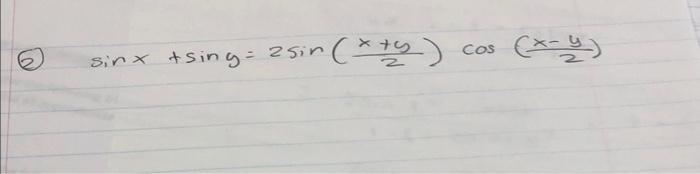 ⑥ sinx + siny = 2 sin (x+y/2) cos (x-y/2)